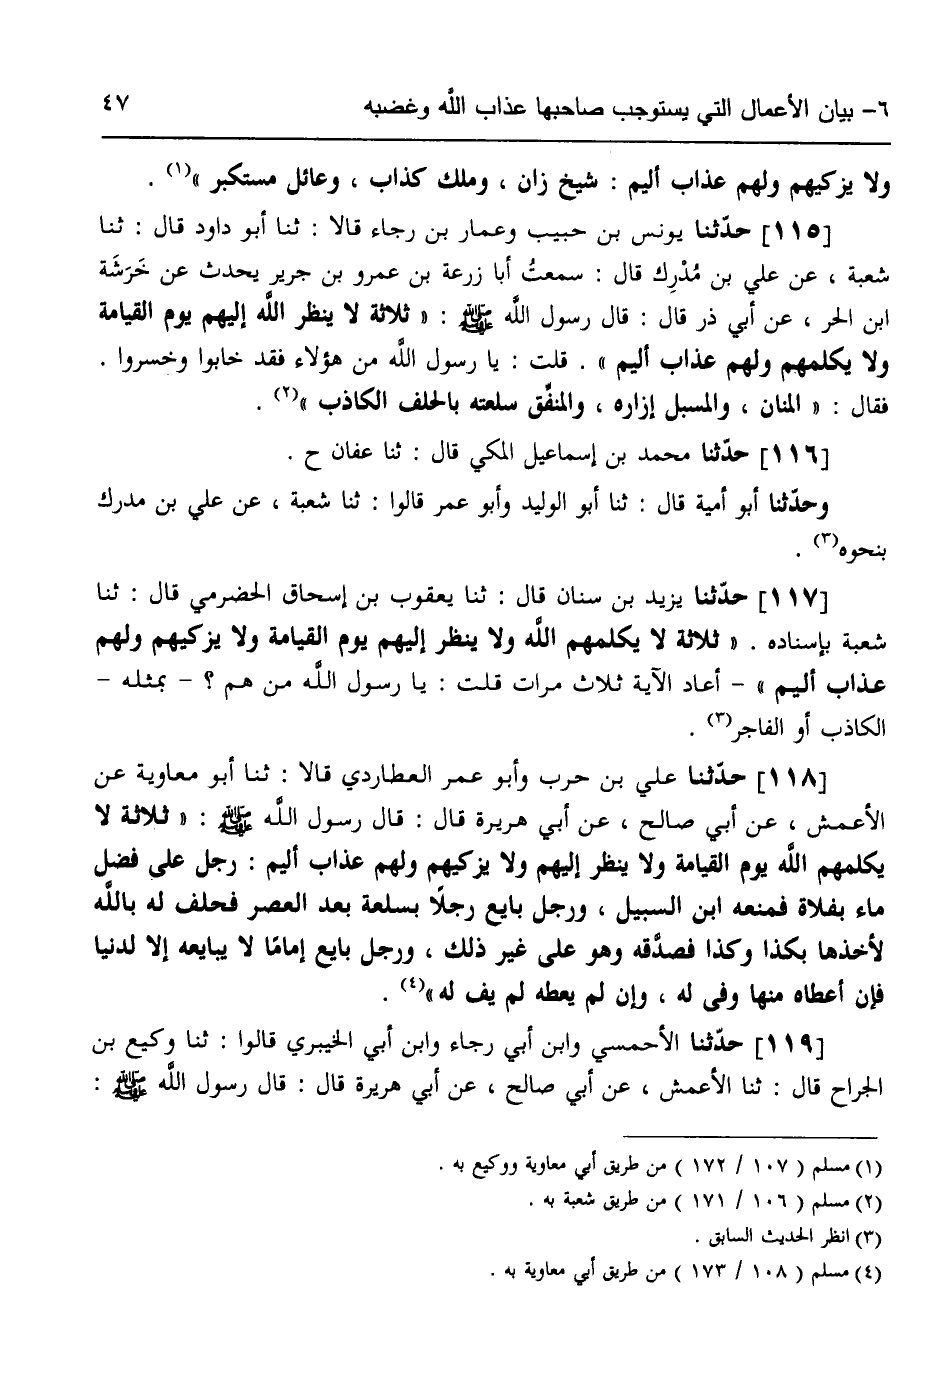 ٦- بيان الأعمال التي يستوجب صاحبها عذاب اللَّه وغضبه ٤٧
ولا يزكيهم ولهم عذاب أليم : شيخ زان ، وملك كذاب ، وعائل مستكبر »(١) .
[١١٥] حدّثنا يونس بن حبيب وعمار بن رجاء قالا : ثنا أبو داود قال : ثنا
شعبة ، عن علي بن مُدْرِك قال : سمعتُ أبا زرعة بن عمرو بن جرير يحدث عن خَرَشَة
ابن الحر ، عن أبي ذر قال : قال رسول اللَّه ﷺ : « ثلاثة لا ينظر اللَّه إليهم يوم القيامة
ولا يكلمهم ولهم عذاب أليم » . قلت : يا رسول اللَّه من هؤلاء فقد خابوا وخسروا .
فقال : « المنان ، والمسبل إزاره ، والمنفِّق سلعته بالحلف الكاذب »(٢) .
[١١٦] حدّثنا محمد بن إسماعيل المكي قال : ثنا عفان ح .
وحدّثنا أبو أمية قال : ثنا أبو الوليد وأبو عمر قالوا : ثنا شعبة ، عن علي بن مدرك
بنحوه(٣) .
[١١٧] حدّثنا يزيد بن سنان قال : ثنا يعقوب بن إسحاق الحضرمي قال : ثنا
شعبة بإسناده . « ثلاثة لا يكلمهم اللَّه ولا ينظر إليهم يوم القيامة ولا يزكيهم ولهم
عذاب أليم » - أعاد الآية ثلاث مرات قلت : يا رسول اللَّه من هم ؟ - بمثله -
الكاذب أو الفاجر(٣) .
[١١٨] حدّثنا علي بن حرب وأبو عمر العطاردي قالا : ثنا أبو معاوية عن
الأعمش ، عن أبي صالح ، عن أبي هريرة قال : قال رسول اللَّه ﷺ : « ثلاثة لا
يكلمهم اللَّه يوم القيامة ولا ينظر إليهم ولا يزكيهم ولهم عذاب أليم : رجل على فضل
ماء بفلاة فمنعه ابن السبيل ، ورجل بايع رجلًا بسلعة بعد العصر فحلف له باللَّه
لأخذها بكذا وكذا فصدَّقه وهو على غير ذلك ، ورجل بايع إمامًا لا يبايعه إلا لدنيا
فإن أعطاه منها وفى له ، وإن لم يعطه لم يف له»(٤) .
[١١٩] حدّثنا الأحمسي وابن أبي رجاء وابن أبي الخيبري قالوا : ثنا وكيع بن
الجراح قال : ثنا الأعمش ، عن أبي صالح ، عن أبي هريرة قال : قال رسول اللَّه ﷺ :
(١) مسلم ( ١٠٧ / ١٧٢ ) من طريق أبي معاوية ووكيع به .
(٢) مسلم ( ١٠٦ / ١٧١ ) من طريق شعبة به .
(٣) انظر الحديث السابق .
(٤) مسلم ( ١٠٨ / ١٧٣ ) من طريق أبي معاوية به .